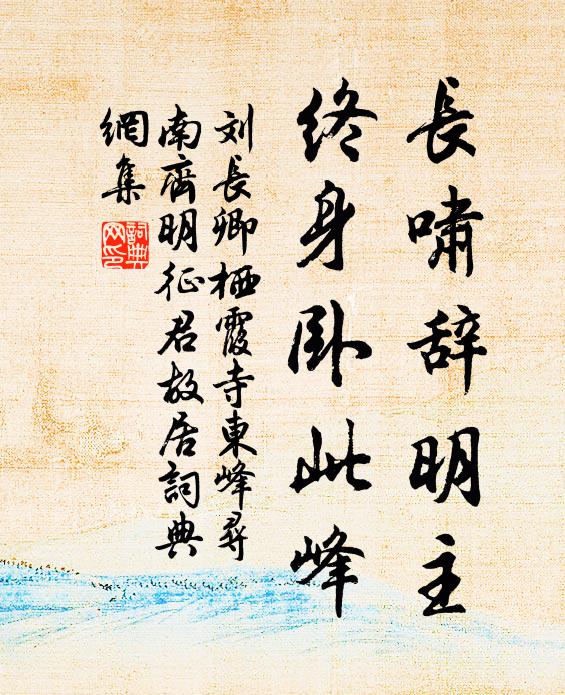 長嘯辞明主
終身卧此峰
刘長卿栖霞寺東峰尋
南齊明征君故居詞典
網集
詞典
网印